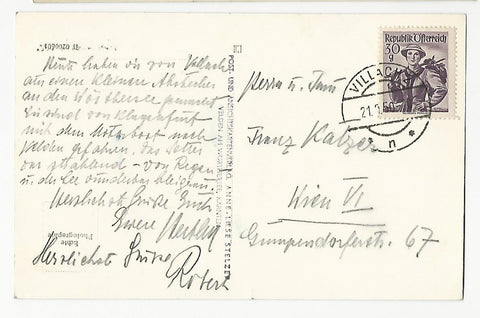 Heute haben wir von Villach
aus einen kleinen Abstecher
an den Wörthersee gemacht
und sind von Klagenfurt
mit dem Motorboot nach
Velden gefahren. Das Wetter
war strahlend – von Regen
u. der See wunderbar
Herzlichste Grüße Euch
Euere
Herzlichst Grüsse
Robert
Echte
Photographie
POST- UND ANSICHTSKARTENVERLAG ANNELIESE STELZER
VELDEN AM WÖRTHERSEE, KÄRNTEN
Republik Österreich
30
g
VILLACH
n
Herrn u. Frau
Franz Kalzer
Wien VI
Gumpendorferstr. 67